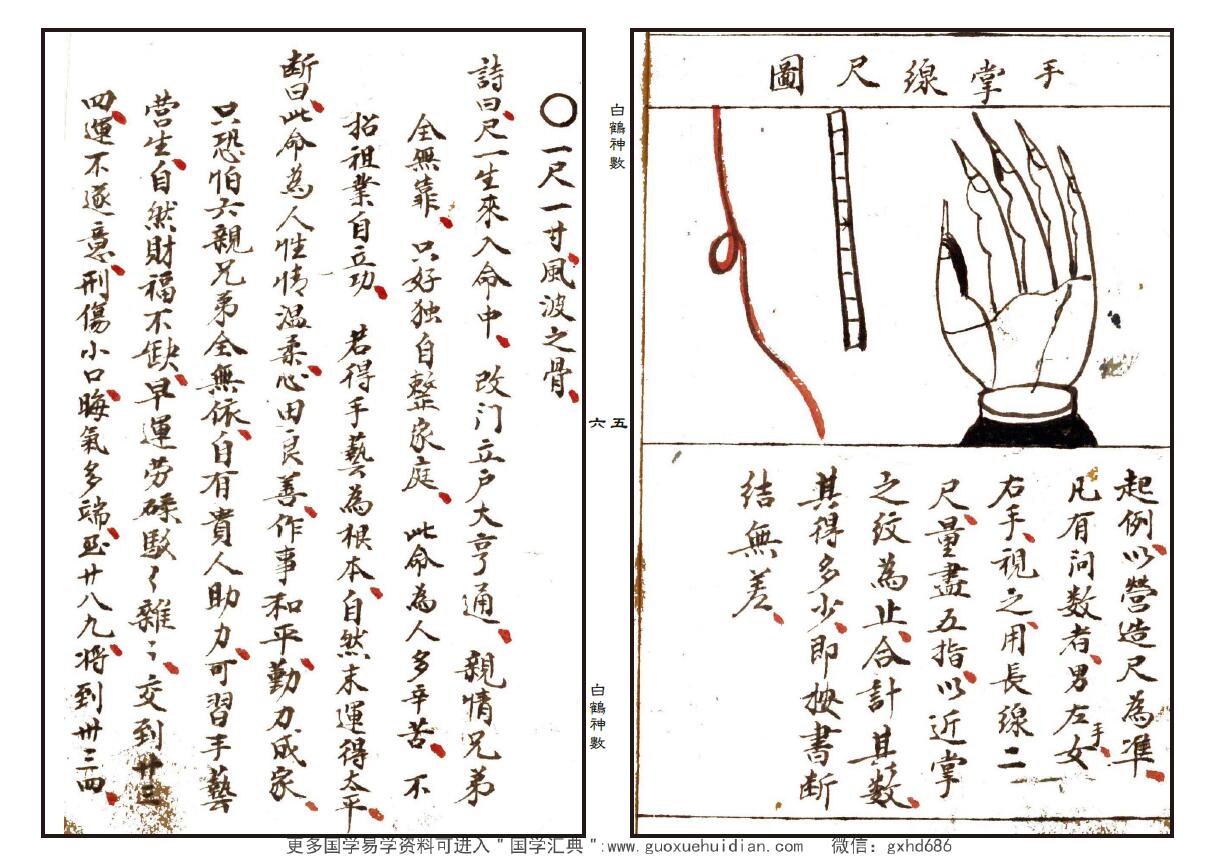 手掌線尺圖
起例以營造尺為準
凡有问数者男左手女
右手視之用長線二
尺量盡五指以近掌
之紋為止合計其数
其得多少即按書断
結無差
白鶴神數
五六
白鶴神數
〇一尺一寸風波之骨
詩曰尺一生來入命中 改门立户大亨通 親情兄弟
全無靠 只好独自整家庭 此命為人多辛苦 不
招祖業自立功 若得手藝為根本自然末運得太平
断曰此命為人性情温柔心田良善作事和平勤力成家
只恐怕六親兄弟全無依自有貴人助力可習手藝
营生自然財福不缺早運劳碌駁々雜々交到廿三
四運不遂意刑傷小口晦氣多端至廿八九将到卅三四
更多国学易学资料可进入＂国学汇典＂:www.guoxuehuidian.com 微信：gxhd686